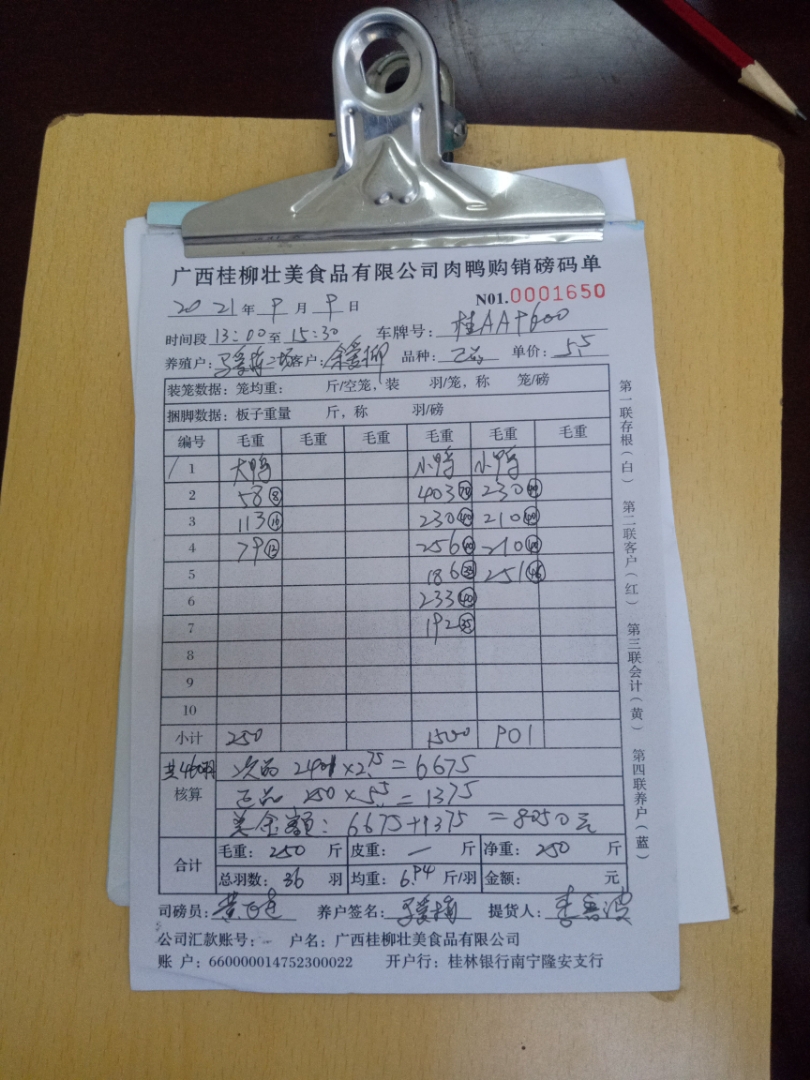 广西桂柳壮美食品有限公司肉鸭购销磅码单
2021年9月9日 N01.0001650
时间段 13:00 至 15:30 车牌号: 桂AAP600
养殖户: 二场 客户: 品种: 单价: 5.5
装笼数据: 笼均重: 斤/空笼, 装 羽/笼, 称 笼/磅
捆脚数据: 板子重量 斤, 称 羽/磅
编号 毛重 毛重 毛重 毛重 毛重 毛重
1 大鸭 小鸭 小鸭
2 58⑧ 403 230
3 113⑯ 230㊵ 210
4 79⑫ 256 210
5 186 251
6 233㊵
7 192
8
9
10
小计 250 1500 901
核算 次品 2401×2.75=6675
正品 250×5.5=1375
总金额: 6675+1375=8050元
合计 毛重: 250 斤 皮重: — 斤 净重: 250 斤
总羽数: 36 羽 均重: 6.94 斤/羽 金额: 元
司磅员: 养户签名: 提货人:
公司汇款账号: 户名: 广西桂柳壮美食品有限公司
账 户: 660000014752300022 开户行: 桂林银行南宁隆安支行
第一联存根(白) 第二联客户(红) 第三联会计(黄) 第四联养户(蓝)